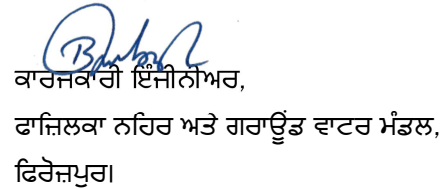 ਕਾਰਜਕਾਰੀ ਇੰਜੀਨੀਅਰ,
ਫਾਜ਼ਿਲਕਾ ਨਹਿਰ ਅਤੇ ਗਰਾਊਂਡ ਵਾਟਰ ਮੰਡਲ,
ਫਿਰੋਜ਼ਪੁਰ।